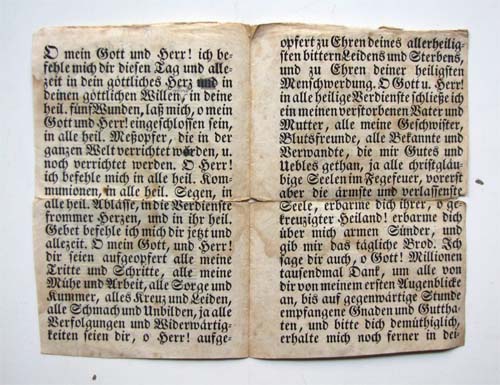 O mein Gott und Herr! ich be-
fehle mich dir diesen Tag und alle-
zeit in dein göttliches Herz und in
deinen göttlichen Willen, in deine
heil. fünf Wunden, laß mich, o mein
Gott und Herr! eingeschlossen sein,
in alle heil. Meßopfer, die in der
ganzen Welt verrichtet werden, u.
noch verrichtet werden. O Herr!
ich befehle mich in alle heil. Kom-
munionen, in alle heil. Segen, in
alle heil. Ablässe, in die Verdienste
frommer Herzen, und in ihr heil.
Gebet befehle ich mich dir jetzt und
allezeit. O mein Gott, und Herr!
dir seien aufgeopfert alle meine
Tritte und Schritte, alle meine
Mühe und Arbeit, alle Sorge und
Kummer, alles Kreuz und Leiden,
alle Schmach und Unbilden, ja alle
Verfolgungen und Widerwärtig-
keiten seien dir, o Herr! aufge-
opfert zu Ehren deines allerheilig-
sten bittern Leidens und Sterbens,
und zu Ehren deiner heiligsten
Menschwerdung. O Gott u. Herr!
in alle heilige Verdienste schließe ich
ein meinen verstorbenen Vater und
Mutter, alle meine Geschwister,
Blutsfreunde, alle Bekannte und
Verwandte, die mir Gutes und
Uebles gethan, ja alle christgläu-
bige Seelen im Fegefeuer, vorerst
aber die ärmste und verlassenste
Seele, erbarme dich ihrer, o ge-
kreuzigter Heiland! erbarme dich
über mich armen Sünder, und
gib mir das tägliche Brod. Ich
sage dir auch, o Gott! Millionen
tausendmal Dank, um alle von
dir von meinem ersten Augenblicke
an, bis auf gegenwärtige Stunde
empfangene Gnaden und Guttha-
ten, und bitte dich demüthiglich,
erhalte mich noch ferner in dei-